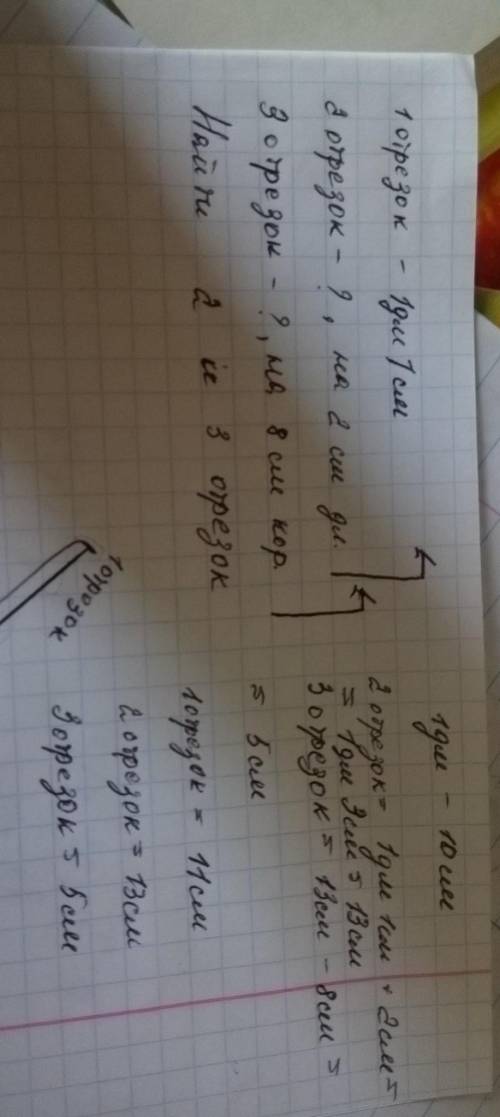 1 отрезок - 1дм 1 см
2 отрезок - ?, на 2 см дл.
3 отрезок - ?, на 8 см кор.
Найти 2 и 3 отрезок
1дм - 10см
2 отрезок = 1дм 1см + 2см =
= 1дм 3см = 13см
3 отрезок = 13см - 8см =
= 5см
1 отрезок = 11см
2 отрезок = 13см
3 отрезок = 5см
1 отрезок